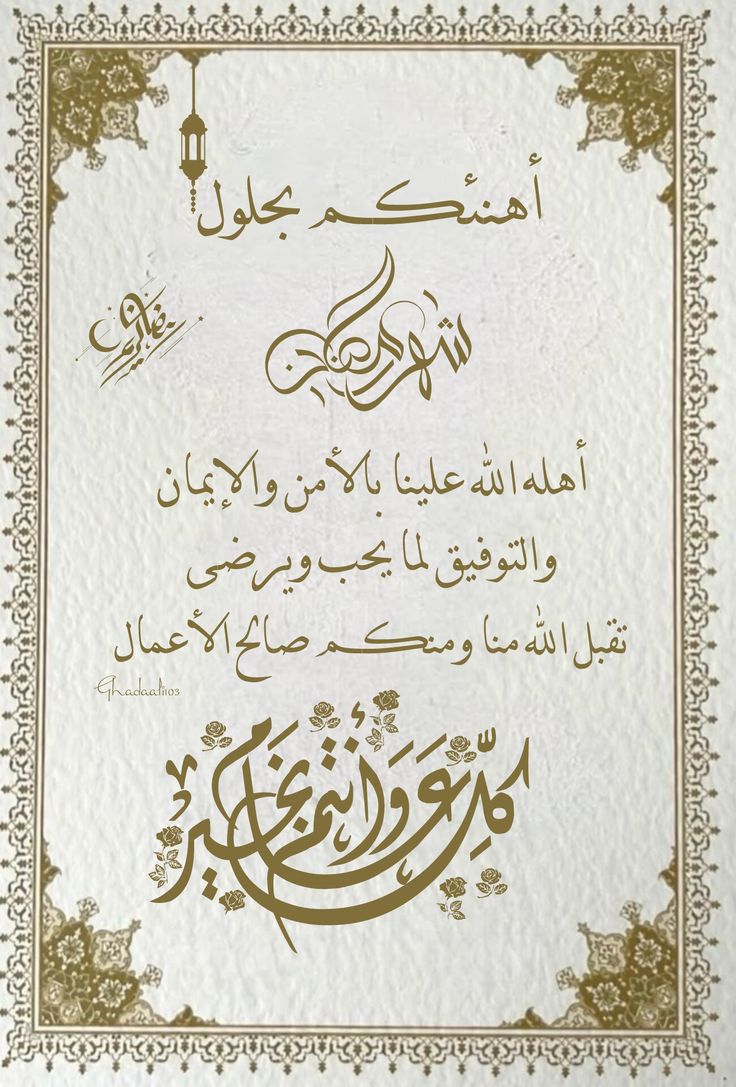 أهنئكم بحلول
شهر رمضان
رمضان كريم
أهله الله علينا بالأمن والإيمان
والتوفيق لما يحب ويرضى
تقبل الله منا ومنكم صالح الأعمال
Ghadaali103
كل عام وأنتم بخير